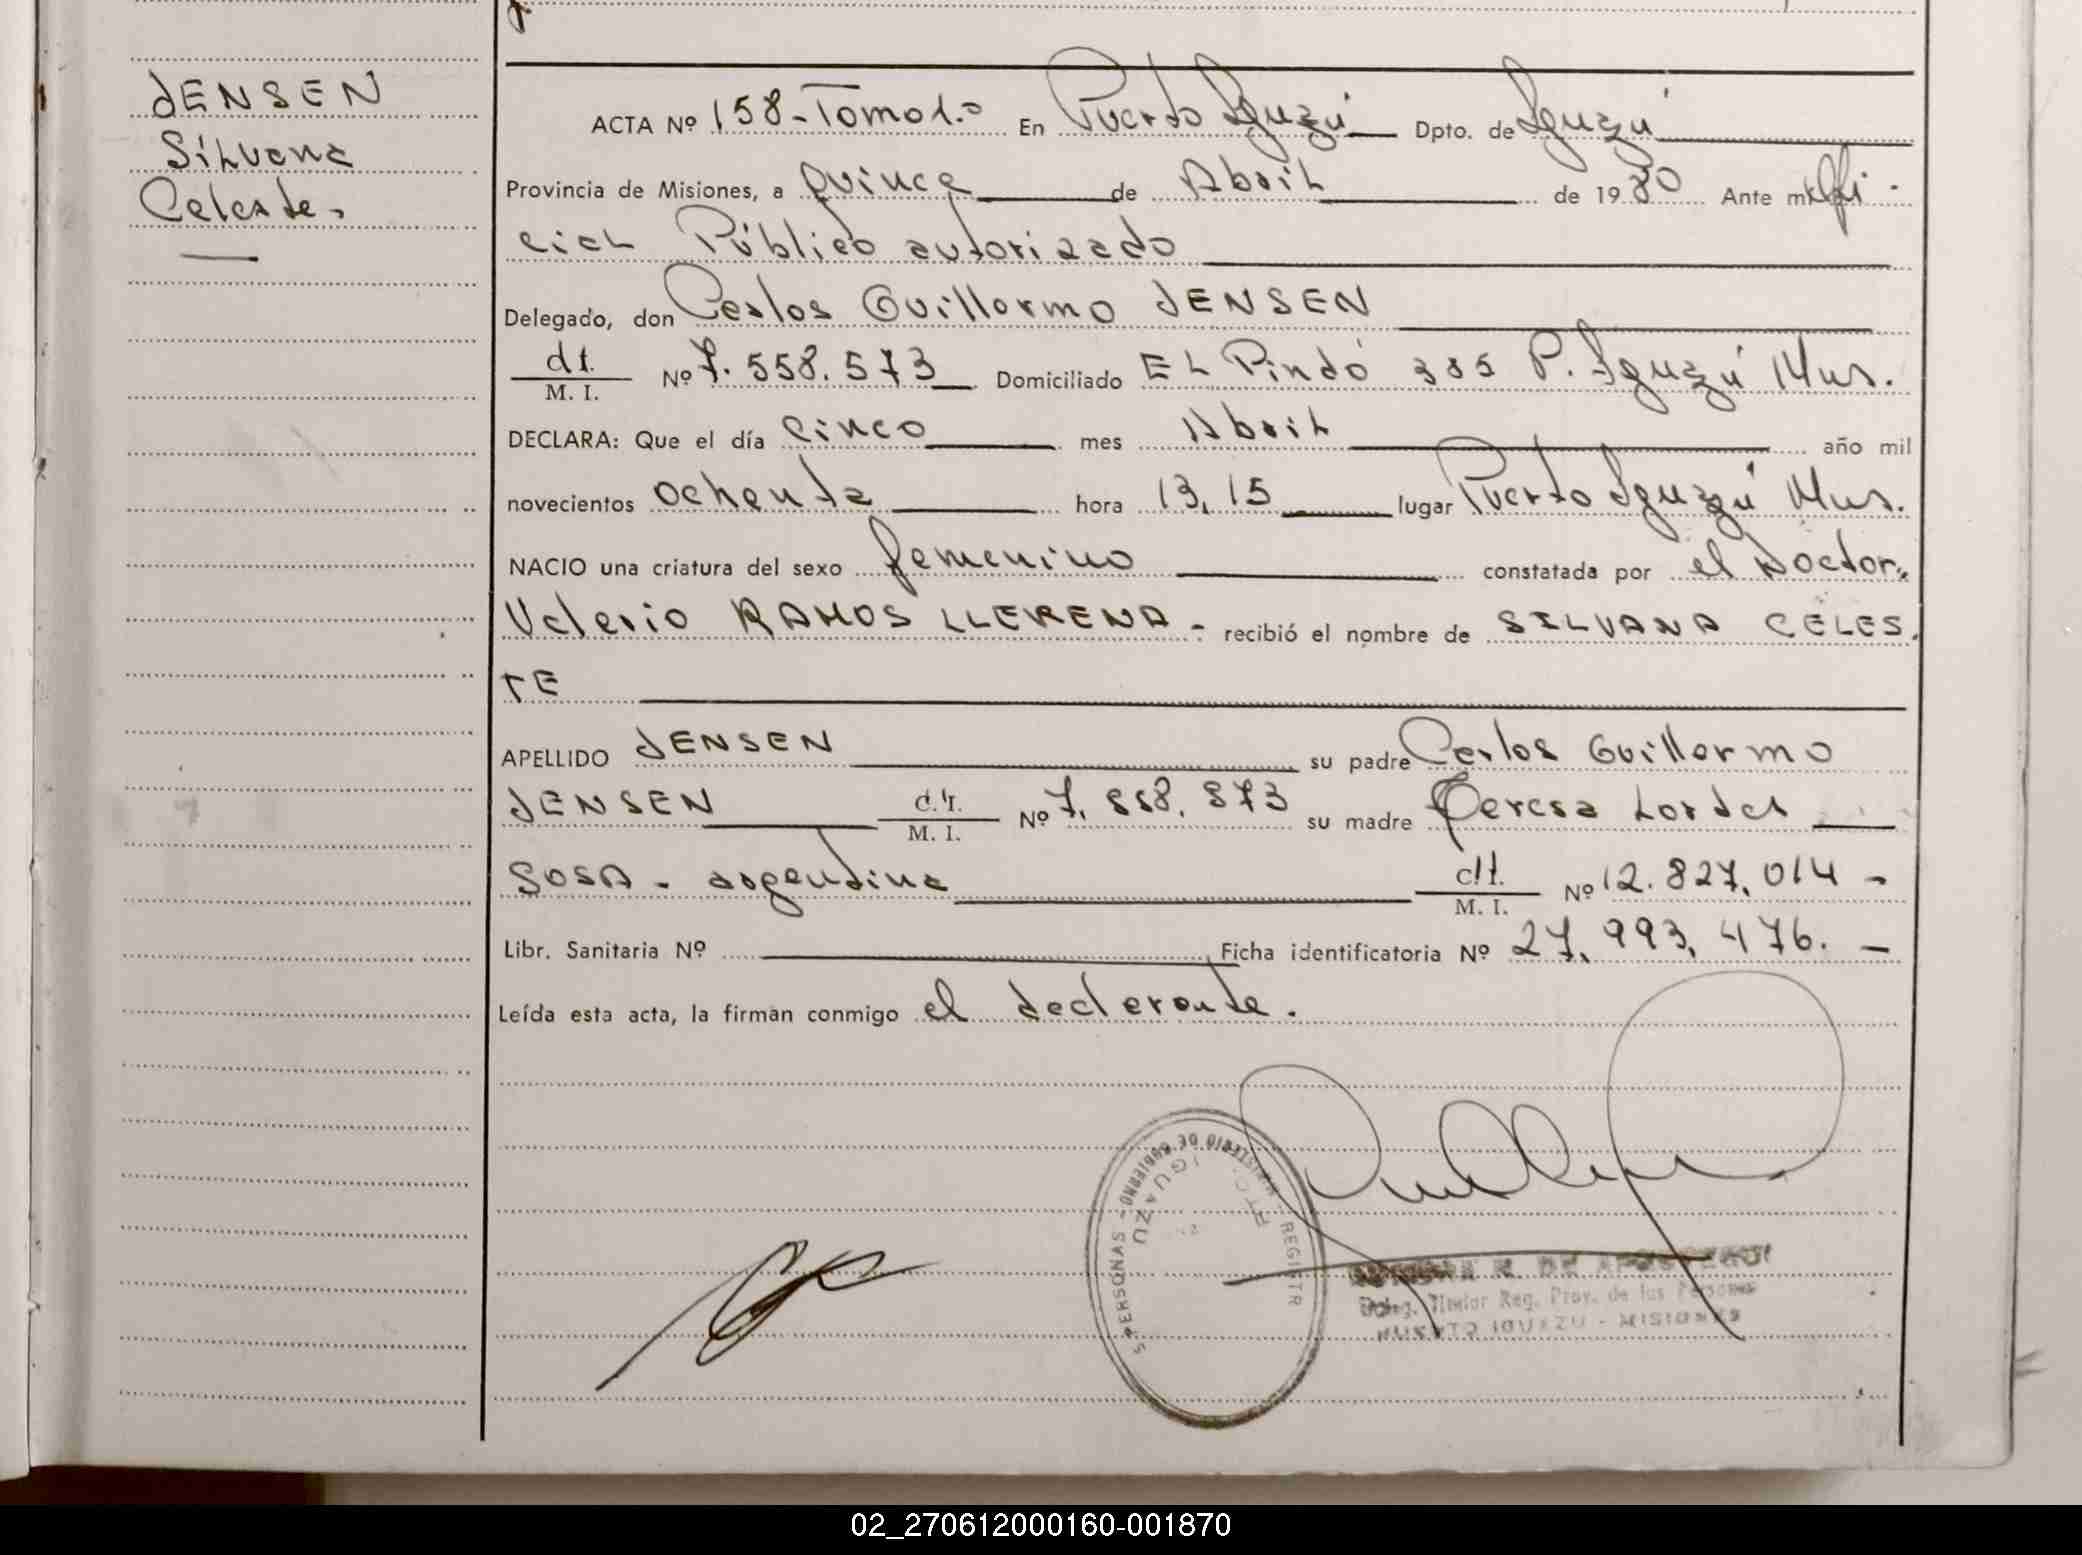 JENSEN
Silvana
Celeste.
ACTA Nº 158-Tomo 1.º En Puerto Iguazú Dpto. de Iguazú
Provincia de Misiones, a quince de Abril de 1980 Ante mi Ofi-
cial Público autorizado
Delegado, don Carlos Guillermo JENSEN
d.t. M. I. Nº 7.558.573 Domiciliado EL Pindó 385 P. Iguazú Mns.
DECLARA: Que el día cinco mes Abril año mil
novecientos ochenta hora 13,15 lugar Puerto Iguazú Mns.
NACIO una criatura del sexo femenino constatada por el Doctor.
Valerio RAMOS LLERENA.- recibió el nombre de SILVANA CELES.
TE
APELLIDO JENSEN su padre Carlos Guillermo
JENSEN M. I. Nº 7.558.573 su madre Teresa Lordes
SOSA - argentina M. I. Nº 12.827.014 -
Libr. Sanitaria Nº Ficha identificatoria Nº 27.993.476. -
Leída esta acta, la firman conmigo el declarante.
PERSONAS - MINISTERIO DE GOBIERNO - REGISTR
PTO. IGUAZU
DE
Deleg. Titular Reg. Prov. de las Personas
PUERTO IGUAZU - MISIONES
02_270612000160-001870